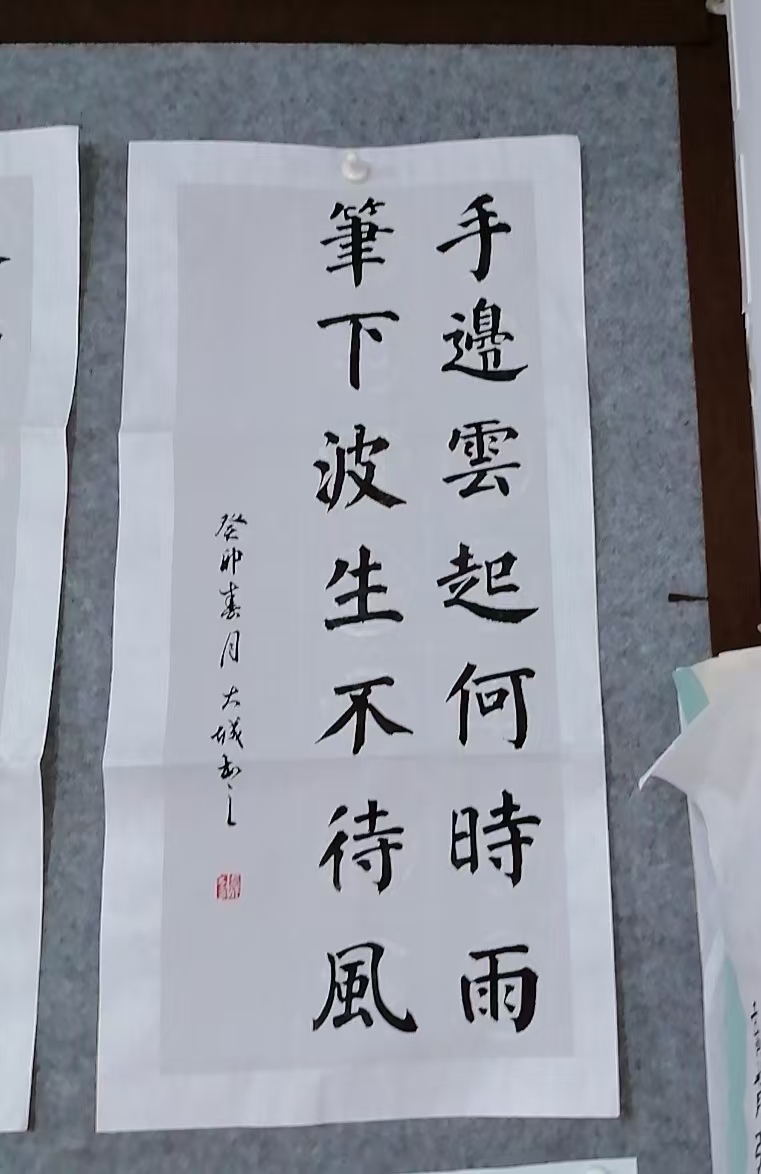 手邊雲起何時雨
筆下波生不待風
癸卯春月大城书之